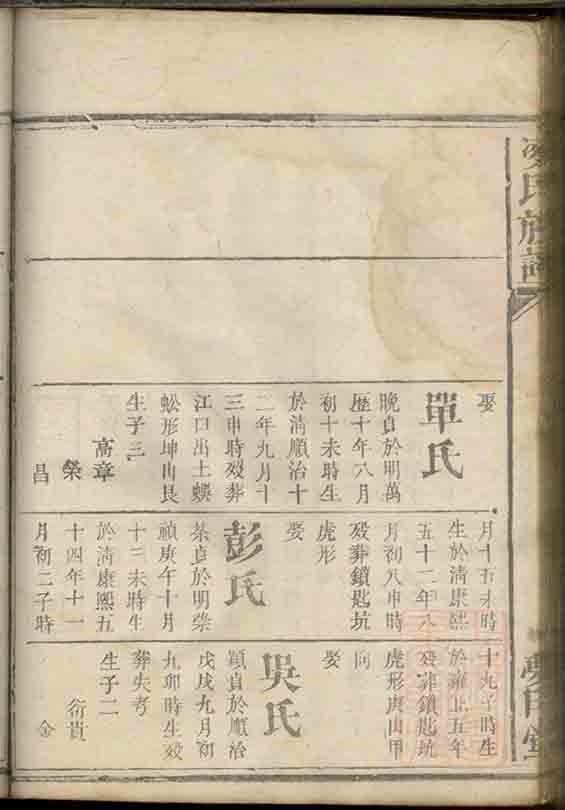 氏族譜
娶
單氏
晚貞於明萬
歴十年八月
初十未時生
於清順治十
二年九月十
三申時殁葬
江口出土蜈
蚣形坤山艮
生子三
高章
榮
昌
月十五未時
生於清康熙
五十二年八
月初八申時
殁葬鎖匙坑
虎形
娶
彭氏
茶貞於明崇
禎庚午十月
十三未時生
於清康熙五
十四年十一
月初二子時
十九子時生
於雍正五年
殁葬鎖匙坑
虎形庚山甲
向
娶
吳氏
穎貞於順治
戊戌九月初
九卯時生殁
葬失考
生子二
衍貴
金